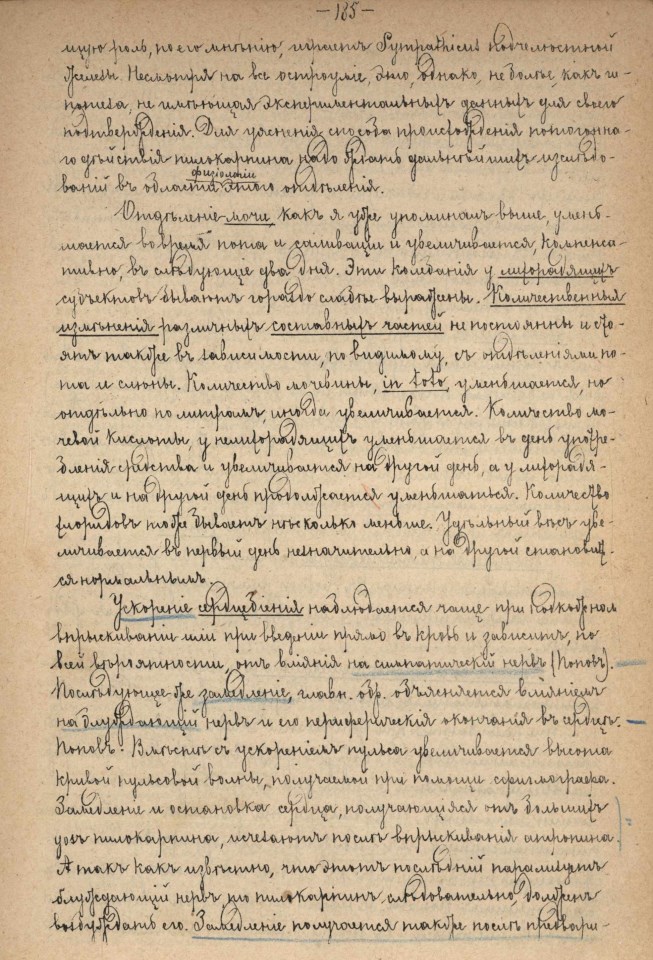 —185—
щую роль, по его мнѣнію, играетъ Sympathicus подчелюстной
железы. Несмотря на все остроуміе, это, однако, не болѣе, какъ ги-
потеза, не имѣющая экспериментальныхъ данныхъ для своего
подтвержденія. Для уясненія способа происхожденія потогонна-
го дѣйствія пилокарпина надо ждать дальнѣйшихъ изслѣдо-
физіологіи
ваній въ области этого отдѣленія.
Отдѣленіе мочи, какъ я уже упоминалъ выше, умень-
шается во время пота и саливаціи и увеличивается, компенса-
тивно, въ слѣдующіе два дня. Эти колебанія у лихорадящихъ
субъектовъ бываютъ гораздо слабѣе выражены. Количественныя
измѣненія различныхъ составныхъ частей не постоянны и сто-
ятъ также въ зависимости, по видимому, съ отдѣленіями по-
та и слюны. Количество мочевины, in toto, уменьшается, но
отдѣльно по литрамъ, иногда увеличивается. Количество мо-
чевой кислоты, у нелихорадящихъ уменьшается въ день употре-
бленія средства и увеличивается на другой день, а у лихорадя-
щихъ и на другой день продолжается уменьшаться. Количество
хлоридовъ тоже бываетъ нѣсколько меньше. Удѣльный вѣсъ уве-
личивается въ первый день незначительно, а на другой становит-
ся нормальнымъ.
Ускореніе сердцебіенія наблюдается чаще при подкожномъ
впрыскиваніи или при введеніи прямо въ кровь и зависитъ, по
всей вѣроятности, отъ вліянія на симпатическій нервъ (Поповъ).
Послѣдующее же замедленіе, главн. обр. объясняется вліяніемъ
на блуждающій нервъ и его периферическія окончанія въ сердцѣ.
Поповъ. Вмѣстѣ съ ускореніемъ пульса увеличивается высота
кривой пульсовой волны, получаемой при помощи сфигмографа.
Замедленіе и остановка сердца, получающіяся отъ большихъ
дозъ пилокарпина, исчезаютъ послѣ впрыскиванія атропина.
А такъ какъ извѣстно, что этотъ послѣдній парализуетъ
блуждающій нервъ, то пилокарпинъ слѣдовательно, долженъ
возбуждать его. Замедленіе получается также послѣ предвари-